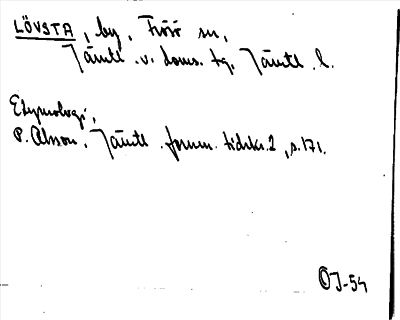 LÖVSTA, by, Frösö sn,
Jämtl. v. doms. tg, Jämtl. l.
Etymologi,
P. Olsson, Jämtl. fornm. tidskr. 2, s. 171.
ÖJ-54